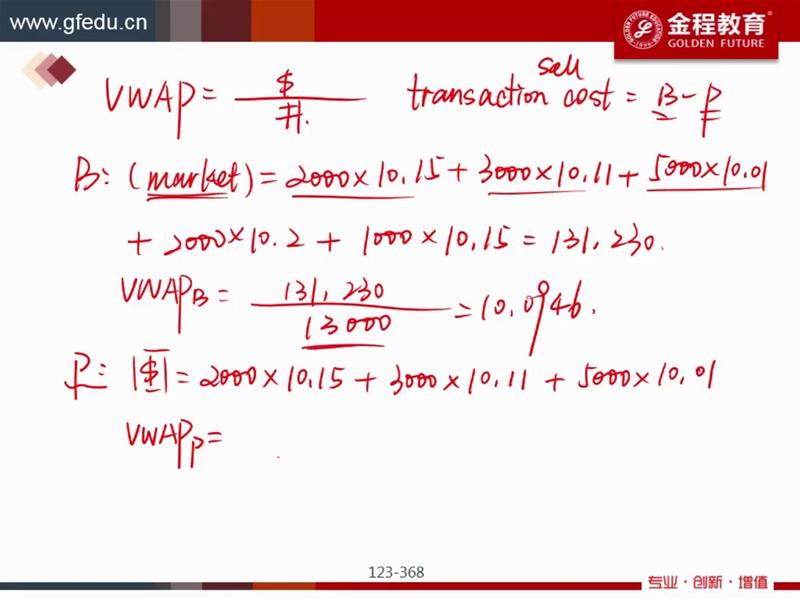 www.gfedu.cn
金程教育
GOLDEN FUTURE
VWAP = $ / #. transaction cost = B - P
sell
B: (market) = 2000 × 10.15 + 3000 × 10.11 + 5000 × 10.01
+ 2000 × 10.2 + 1000 × 10.15 = 131,230.
VWAP_B = 131,230 / 13000 = 10.0946.
P: |$| = 2000 × 10.15 + 3000 × 10.11 + 5000 × 10.01
VWAP_P =
123-368
专业·创新·增值